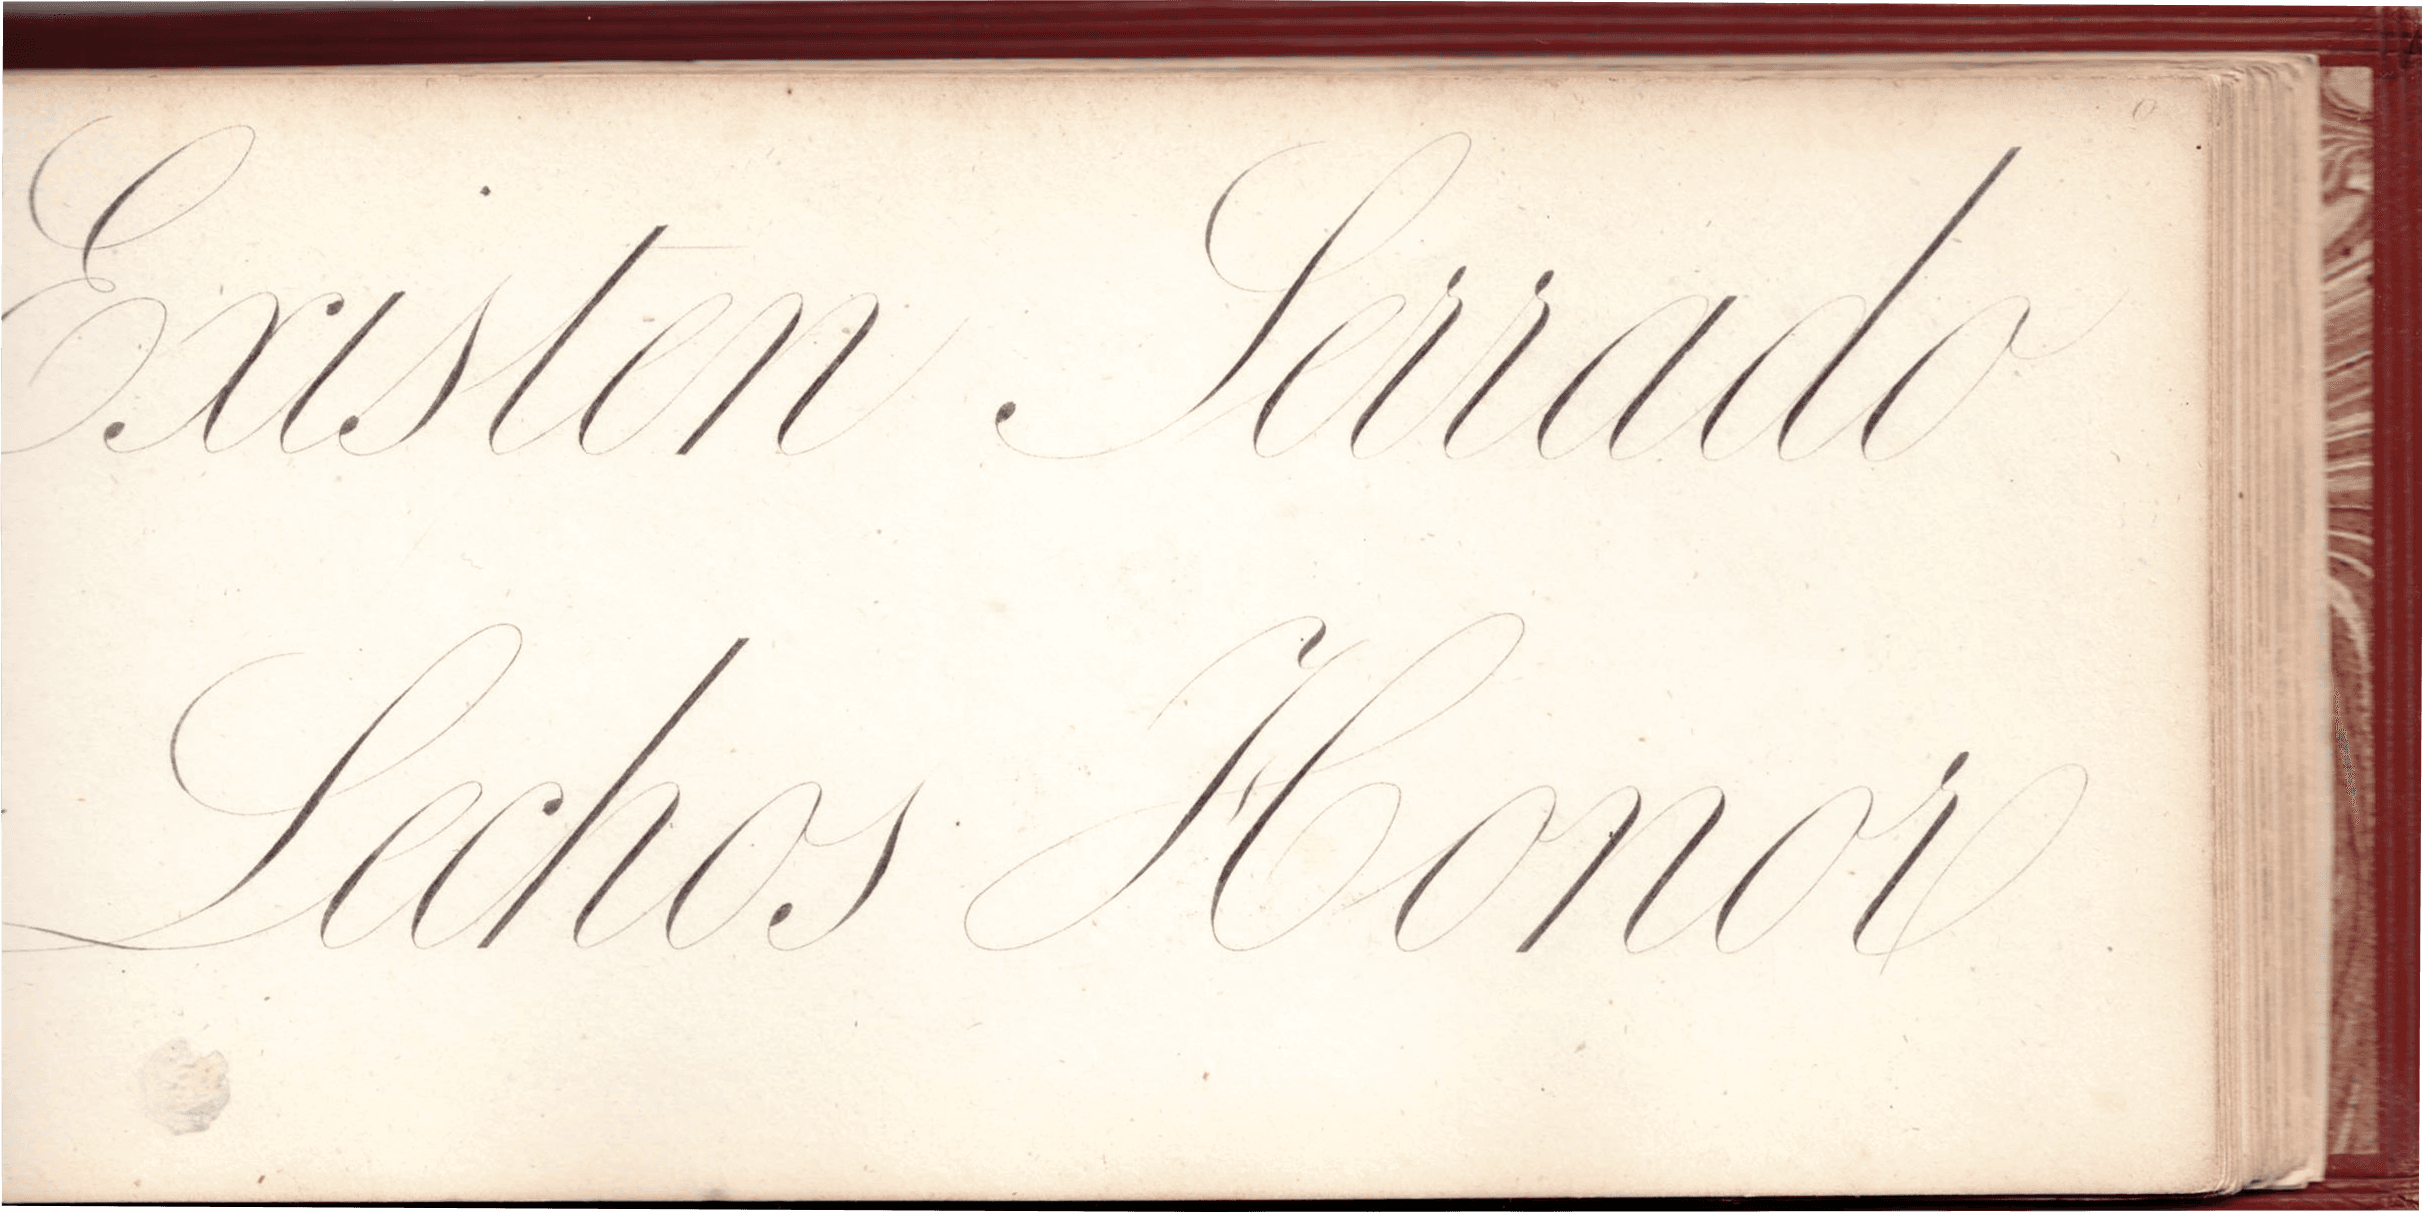 Existen Serrado
Lechos Honor